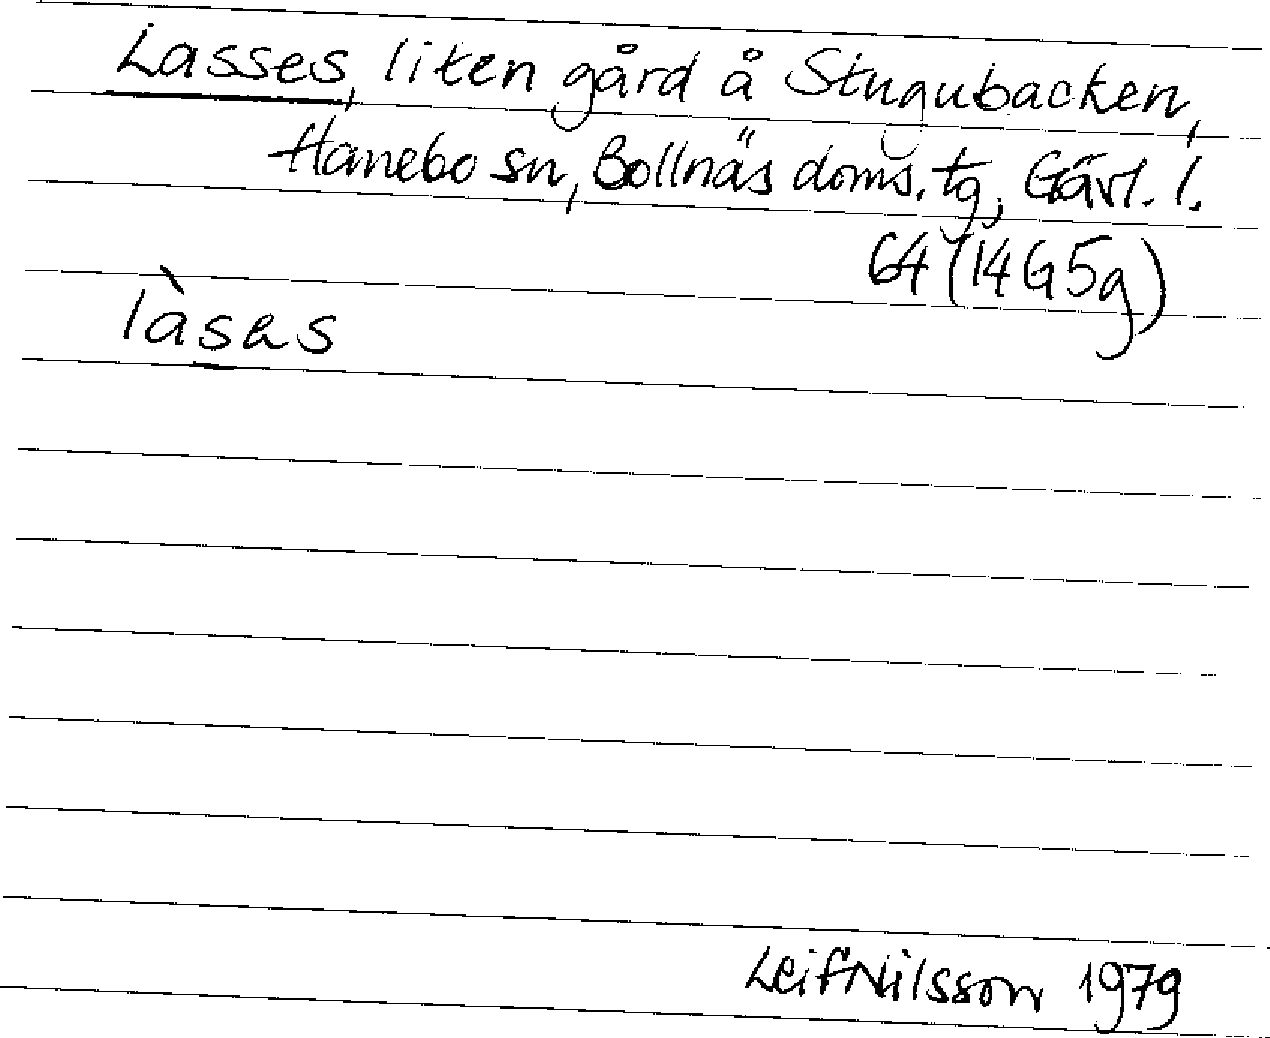 Lasses, liten gård å Stugubacken,
Hanebo sn, Bollnäs doms.tg, Gävl. l.
64 (14G5g)
làsas
Leif Nilsson 1979